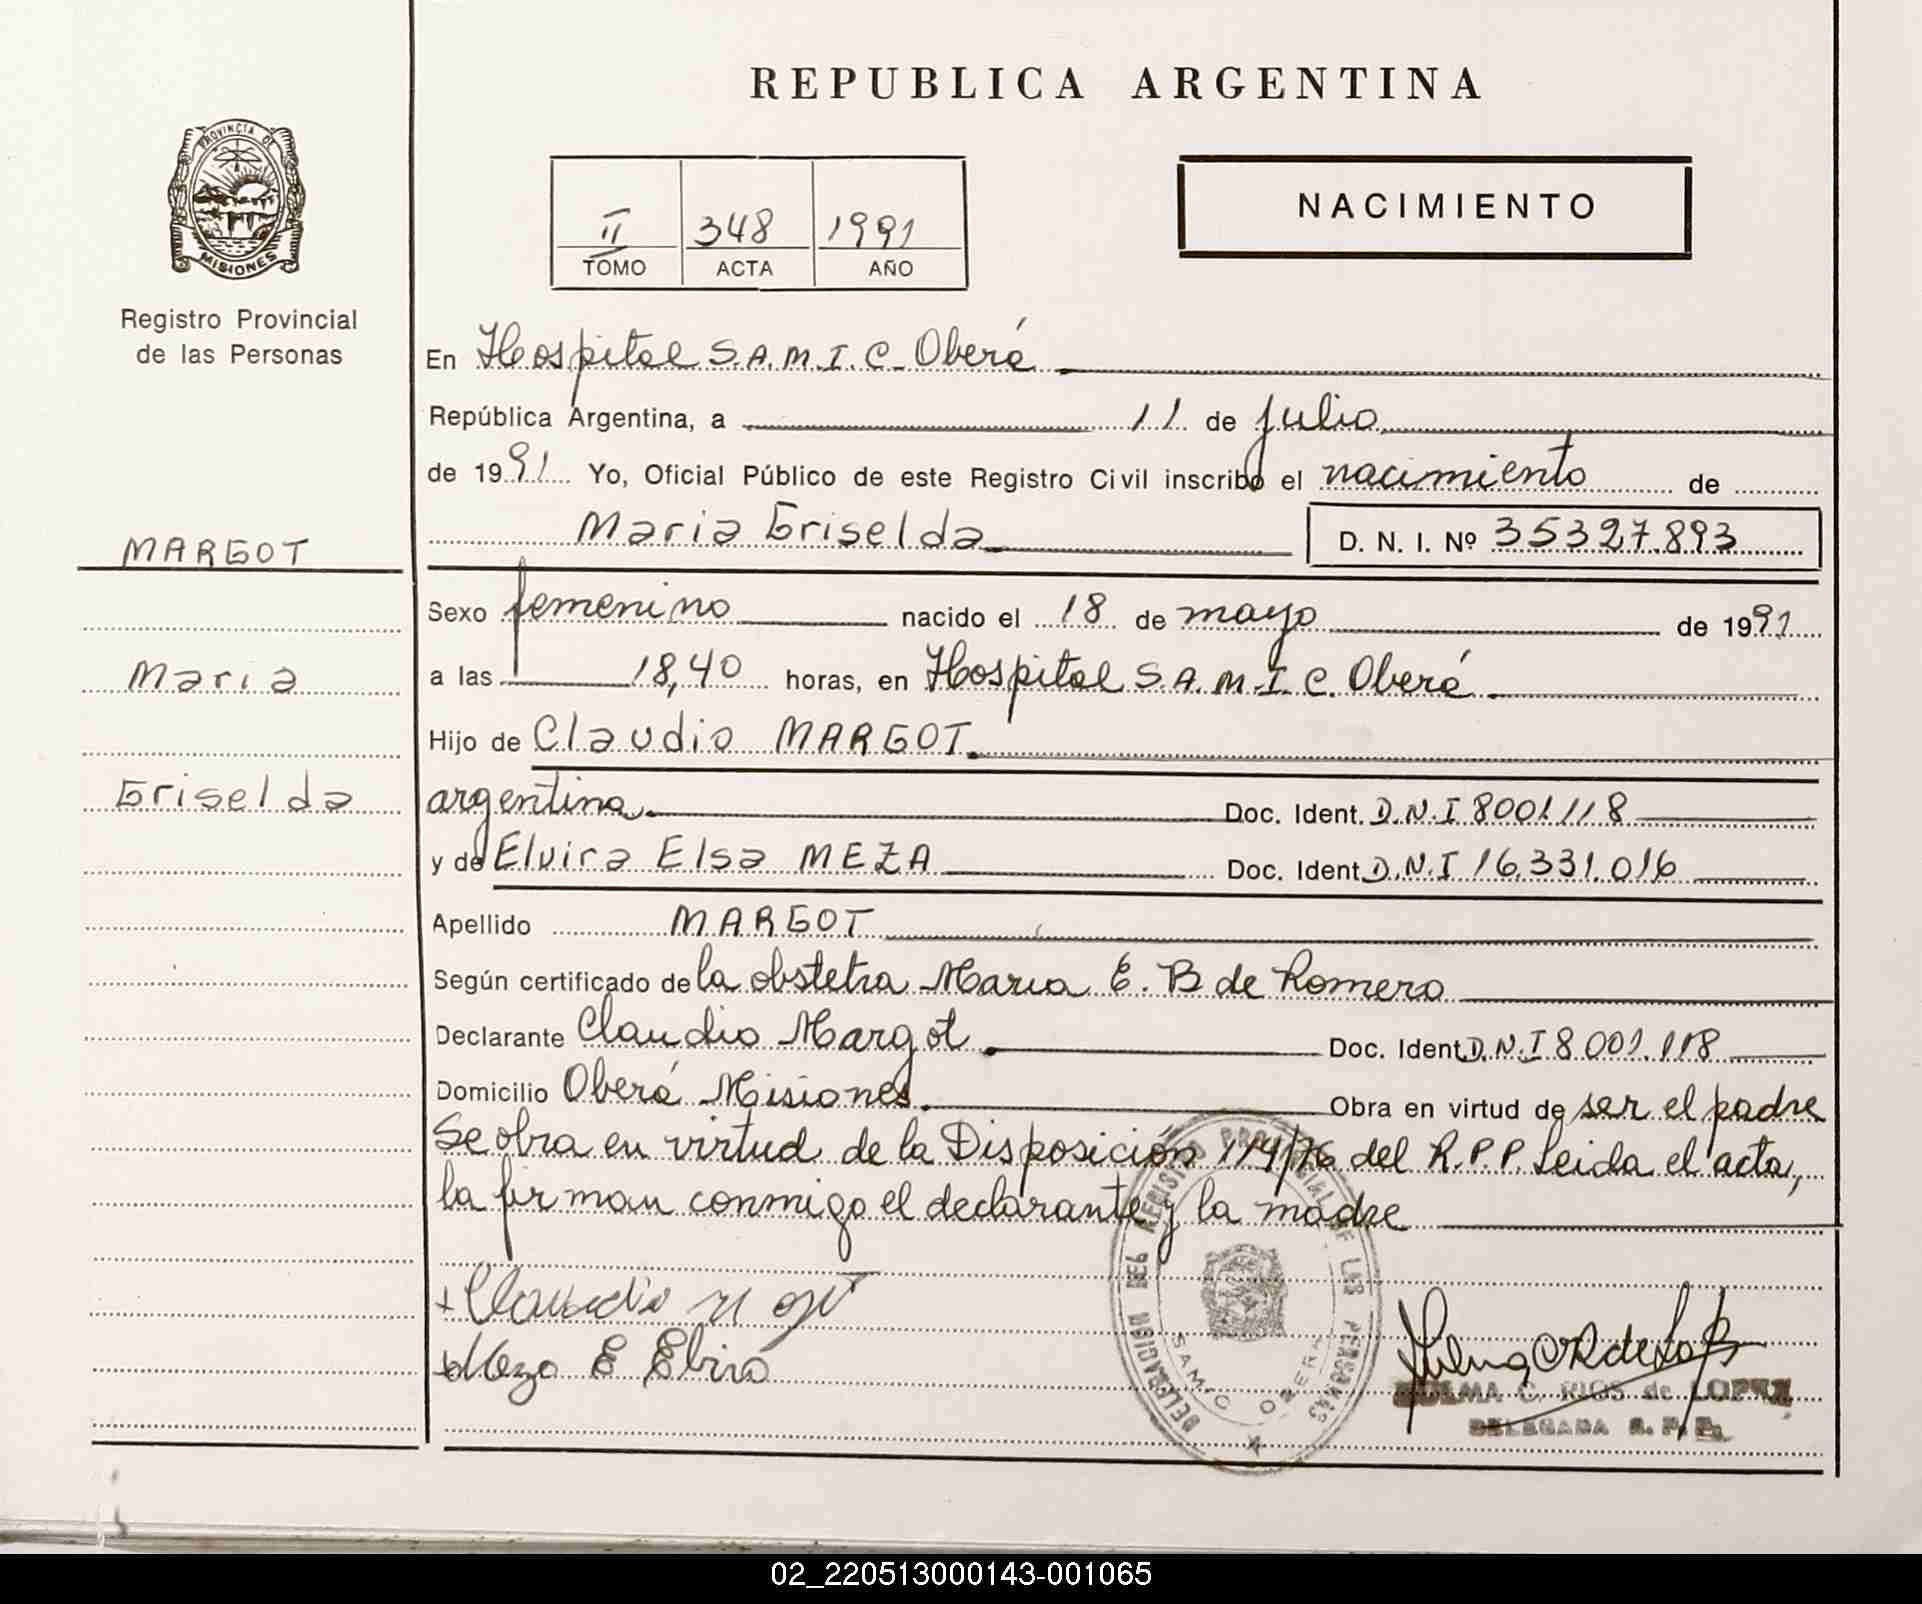 REPUBLICA ARGENTINA
PROVINCIA DE
MISIONES
Registro Provincial
de las Personas
II 348 1991
TOMO ACTA AÑO
NACIMIENTO
En Hospital S.A.M.I.C. Oberá
República Argentina, a 11 de julio
de 1991 Yo, Oficial Público de este Registro Civil inscribo el nacimiento de
Maria Griselda D. N. I. Nº 35327.893
MARGOT
Maria
Griselda
Sexo femenino nacido el 18 de mayo de 1991
a las 18,40 horas, en Hospital S.A.M.I.C. Oberá
Hijo de Claudio MARGOT
argentina Doc. Ident. D.N.I 8001.118
y de Elvira Elsa MEZA Doc. Ident. D.N.I 16.331.016
Apellido MARGOT
Según certificado de la obstetra Maria E. B de Romero
Declarante Claudio Margot Doc. Ident. D.N.I 8001.118
Domicilio Oberá Misiones Obra en virtud de ser el padre
Se obra en virtud de la Disposición 114/76 del R.P.P. Leida el acta,
la firman conmigo el declarante y la madre
Meza E Elvira
DELEGACION DEL REGISTRO PROVINCIAL DE LAS PERSONAS
SAMIC OBERA
C. RIOS de LOPEZ
DELEGADA R. P. P.
02_220513000143-001065